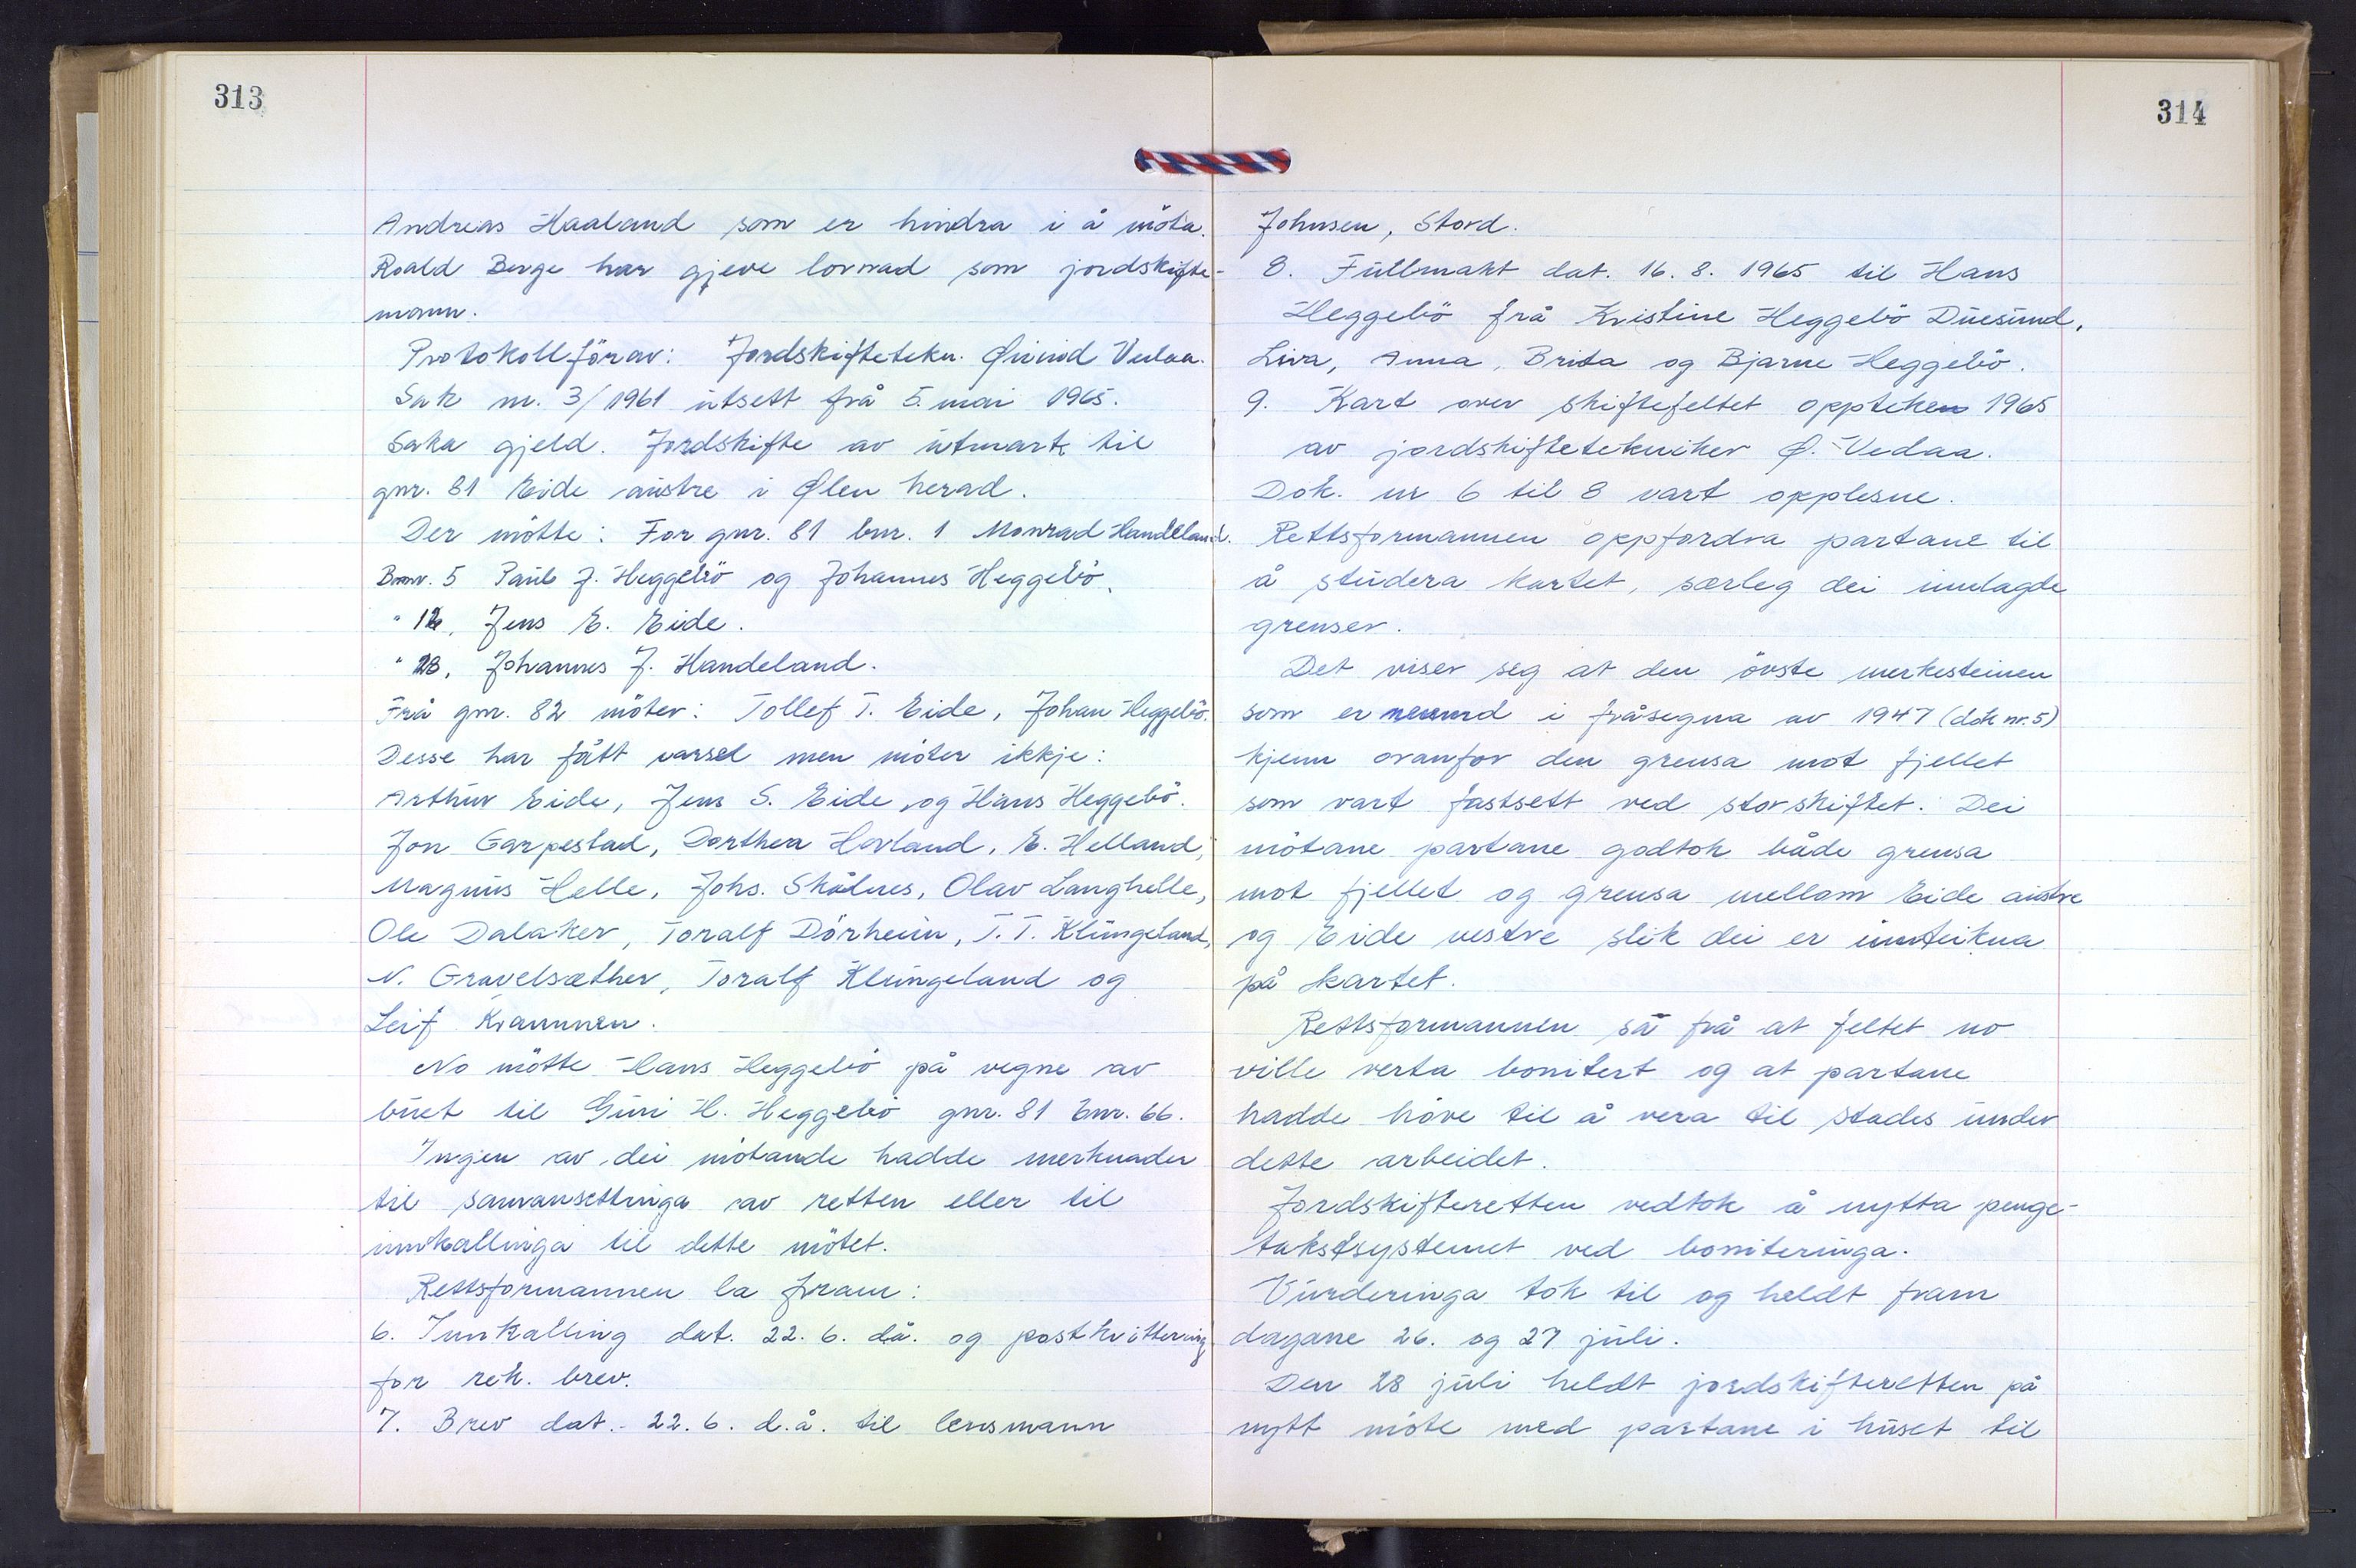 313
Andreas Haaland som er hindra i å möta.
Roald Berge har gjeve lovnad som jordskifte-
mann.
Protokollförar: Jordskiftetekn. Øivind Vedaa.
Sak nr. 3/1961 utsett frå 5. mai 1965.
Saka gjeld. Jordskifte av utmark til
gnr. 81 Eide austre i Ølen herad.
Der mötte: For gnr. 81 bnr. 1 Monrad Handeland.
Bnr. 5 Paul J. Heggebö og Johannes Heggebö.
" 12, Jens E. Eide.
" 28, Johannes J. Handeland.
Frå gnr. 82 möter: Tollef T. Eide, Johan Heggebö.
Desse har fått varsel men möter ikkje:
Arthur Eide, Jens S. Eide og Hans Heggebö.
Jon Garpestad, Dorthea Hovland, E. Helland,
Magnus Helle, Johs. Skålnes, Olav Langhelle,
Ole Dalaker, Toralf Dörheim, T. T. Klungeland,
N. Gravelsæther, Toralf Klungeland og
Leif Kvammen.
No mötte Hans Heggebö på vegne av
buet til Guri H. Heggebö gnr. 81 bnr. 66.
Ingen av dei mötande hadde merknader
til samansettinga av retten eller til
innkallinga til dette mötet.
Rettsformannen la fram:
6. Innkalling dat. 22. 6. då. og postkvittering
for rek. brev.
7. Brev dat. 22. 6. d.å. til lensmann
314
Johnsen, Stord.
8. Fullmakt dat. 16. 8. 1965 til Hans
Heggebö frå Kristine Heggebö Duesund,
Liva, Anna, Brita og Bjarne Heggebö.
9. Kart over skiftefeltet oppteken 1965
av jordskiftetekniker Ø. Vedaa.
Dok. nr 6 til 8 vart opplesne.
Rettsformannen oppfordra partane til
å studera kartet, særleg dei innlagde
grenser.
Det viser seg at den övste merkesteinen
som er nemnd i fråsegna av 1947 (dok nr. 5)
kjem ovanfor den grensa mot fjellet
som vart fastsett ved storskiftet. Dei
mötane partane godtok både grensa
mot fjellet og grensa mellom Eide austre
og Eide vestre slik dei er innteikna
på kartet.
Rettsformannen sa frå at feltet no
ville verta bonitert og at partane
hadde höve til å vera til stades under
dette arbeidet.
Jordskifteretten vedtok å nytta penge-
takstsystemet ved boniteringa.
Vurderinga tok til og heldt fram
dagane 26. og 27 juli.
Den 28 juli heldt jordskifteretten på
nytt möte med partane i huset til